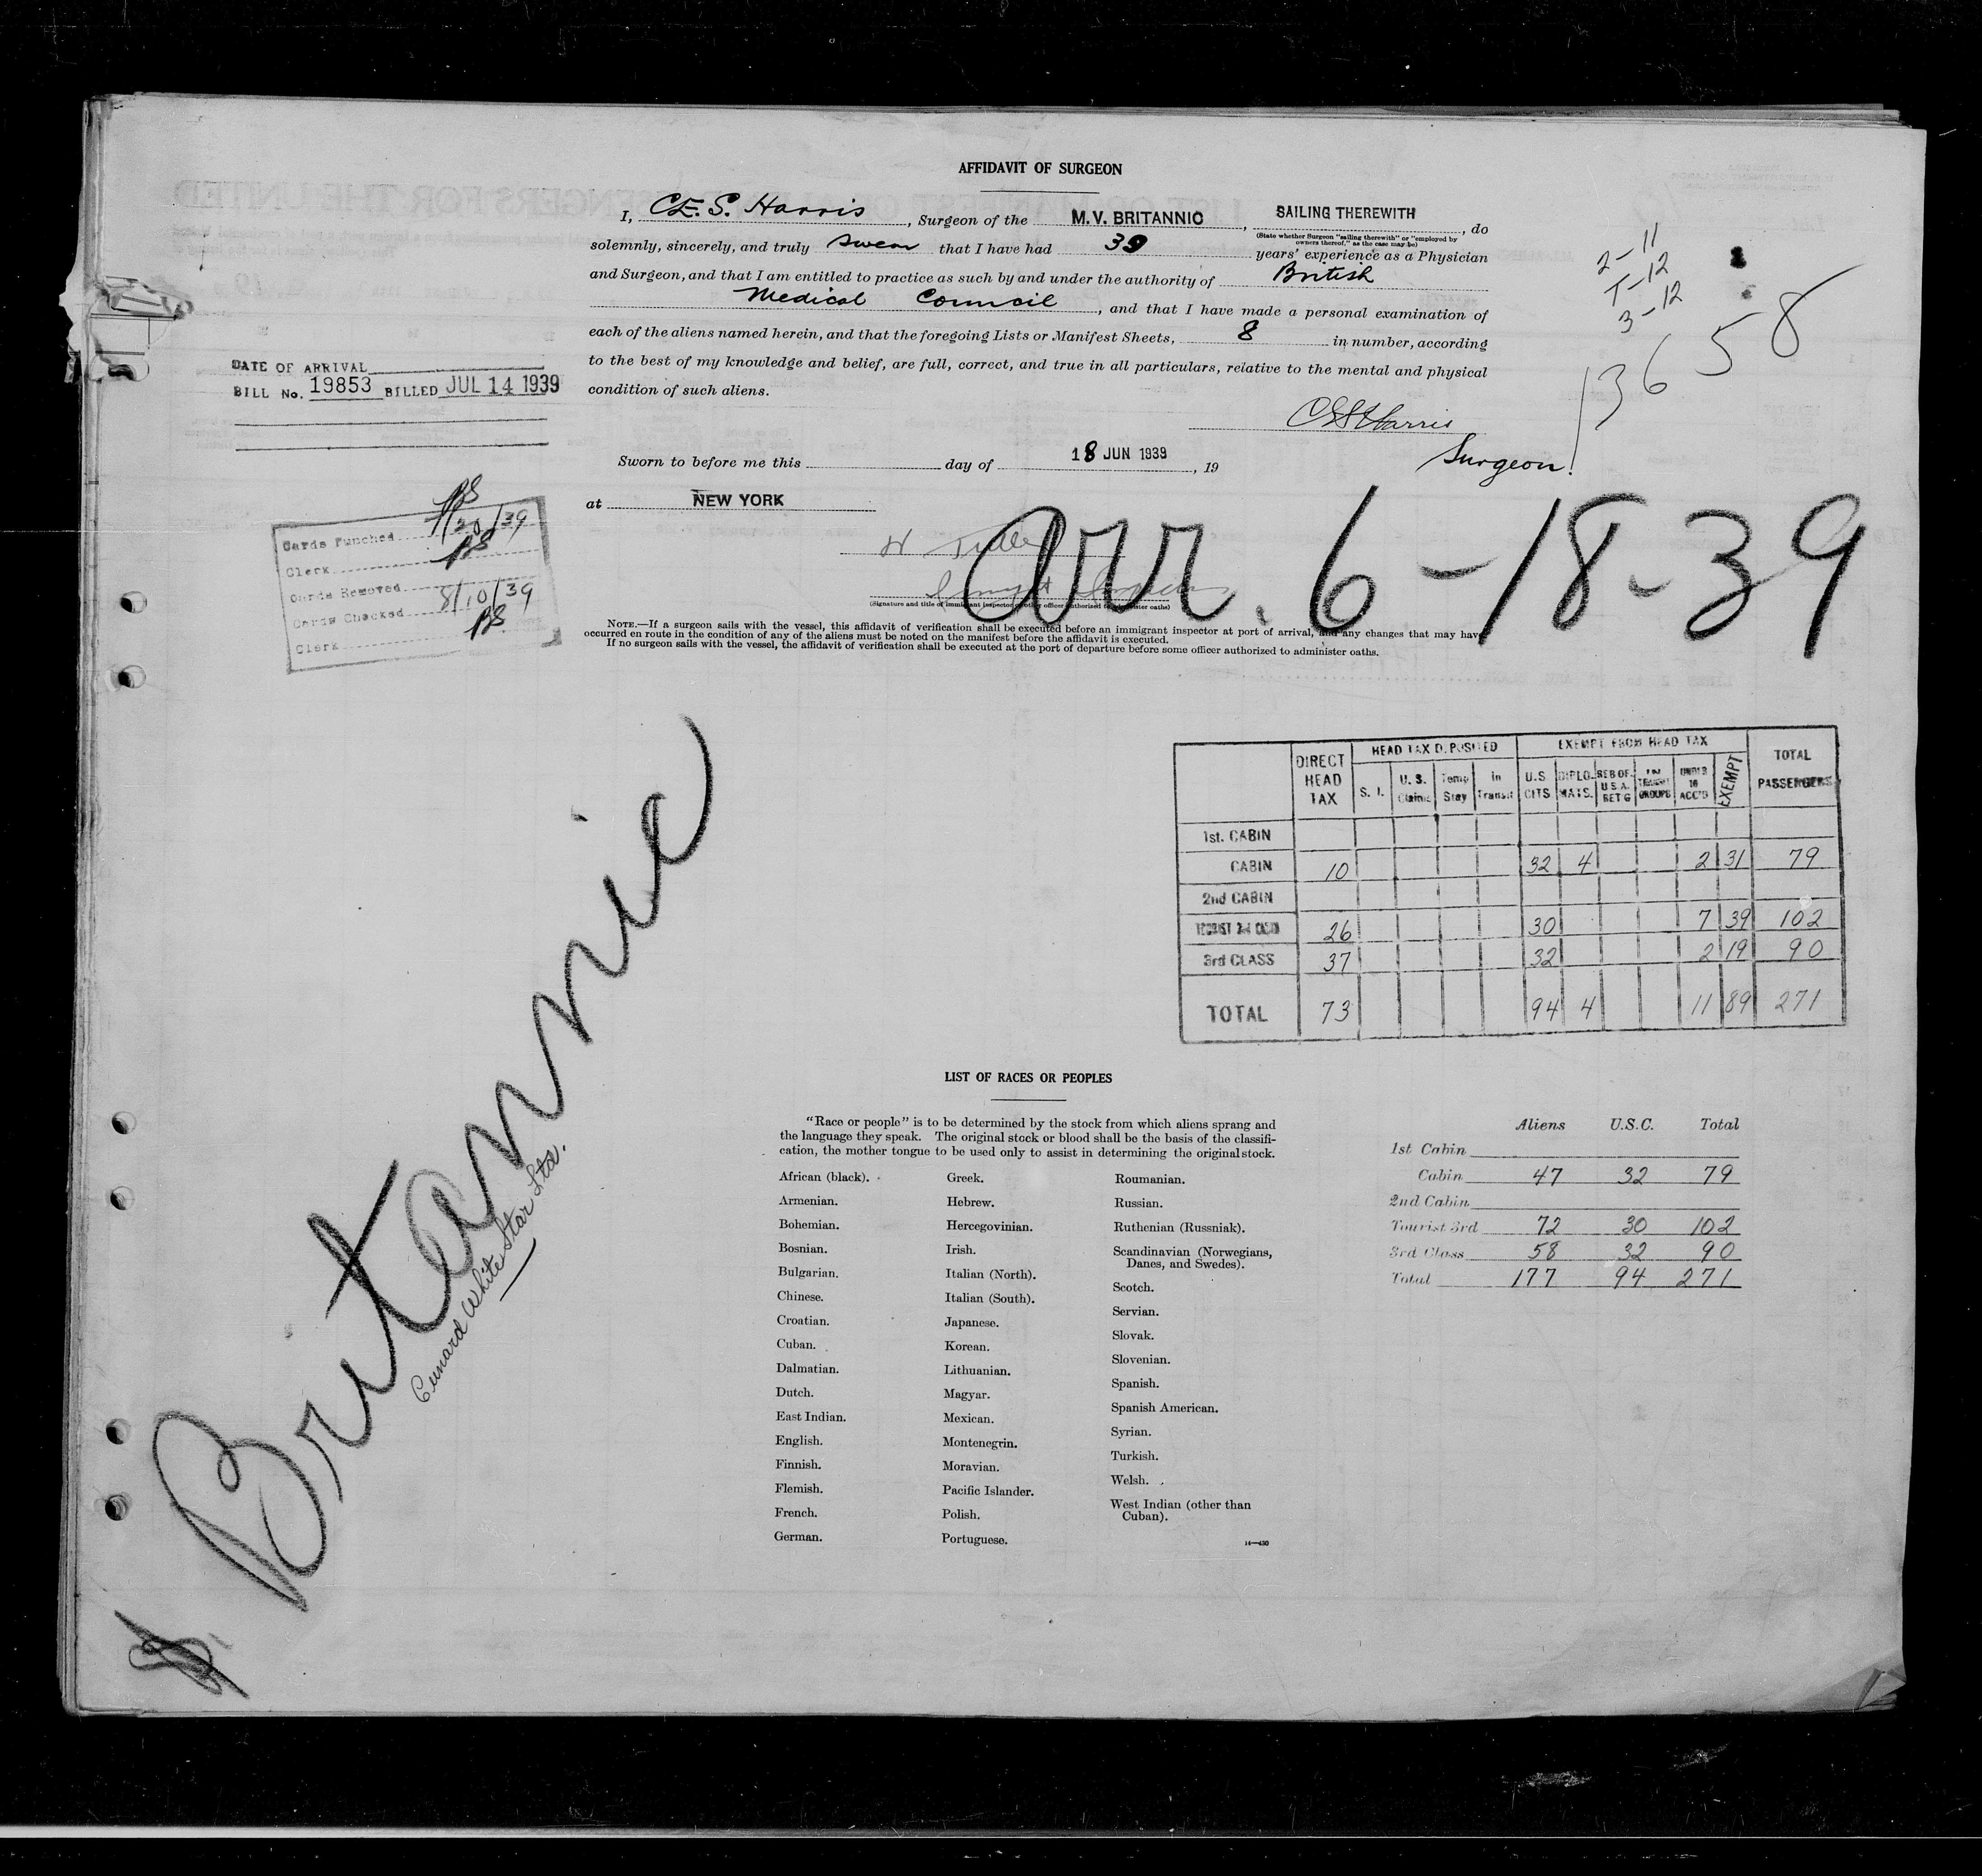 AFFIDAVIT OF SURGEON
I, C.E.S. Harris, Surgeon of the M.V. BRITANNIC, SAILING THEREWITH, do
(State whether Surgeon "sailing therewith" or "employed by owners thereof," as the case may be)
solemnly, sincerely, and truly swear that I have had 39 years' experience as a Physician
and Surgeon, and that I am entitled to practice as such by and under the authority of British
Medical Council, and that I have made a personal examination of
each of the aliens named herein, and that the foregoing Lists or Manifest Sheets, 8 in number, according
to the best of my knowledge and belief, are full, correct, and true in all particulars, relative to the mental and physical
condition of such aliens.
CES Harris
Surgeon.
Sworn to before me this day of 18 JUN 1939, 19
at NEW YORK
(Signature and title of immigrant inspector or other officer authorized to administer oaths)
NOTE.—If a surgeon sails with the vessel, this affidavit of verification shall be executed before an immigrant inspector at port of arrival, and any changes that may have
occurred en route in the condition of any of the aliens must be noted on the manifest before the affidavit is executed.
If no surgeon sails with the vessel, the affidavit of verification shall be executed at the port of departure before some officer authorized to administer oaths.
2-11
1-12
3-12
13658
Arr. 6-18-39
DATE OF ARRIVAL
BILL No. 19853 BILLED JUL 14 1939
Cards Punched 7/20/39
Clerk BS
Cards Removed
Cards Checked 8/10/39
Clerk BS
Britannic
Cunard White Star Ltd.
DIRECT HEAD TAX
HEAD TAX DEPOSITED
S. I.
U. S. Claims
Temp Stay
in Transit
EXEMPT FROM HEAD TAX
U.S. CITS
DIPLO-MATS.
RES OF U.S.A. RET'G
TRANSIT GROUPS
UNDER 16 ACC'D
EXEMPT
TOTAL PASSENGERS
1st. CABIN
CABIN 10 32 4 2 31 79
2nd CABIN
TOURIST 3rd CABIN 26 30 7 39 102
3rd CLASS 37 32 2 19 90
TOTAL 73 94 4 11 89 271
LIST OF RACES OR PEOPLES
"Race or people" is to be determined by the stock from which aliens sprang and
the language they speak. The original stock or blood shall be the basis of the classifi-
cation, the mother tongue to be used only to assist in determining the original stock.
African (black).
Armenian.
Bohemian.
Bosnian.
Bulgarian.
Chinese.
Croatian.
Cuban.
Dalmatian.
Dutch.
East Indian.
English.
Finnish.
Flemish.
French.
German.
Greek.
Hebrew.
Hercegovinian.
Irish.
Italian (North).
Italian (South).
Japanese.
Korean.
Lithuanian.
Magyar.
Mexican.
Montenegrin.
Moravian.
Pacific Islander.
Polish.
Portuguese.
Roumanian.
Russian.
Ruthenian (Russniak).
Scandinavian (Norwegians,
Danes, and Swedes).
Scotch.
Servian.
Slovak.
Slovenian.
Spanish.
Spanish American.
Syrian.
Turkish.
Welsh.
West Indian (other than
Cuban).
14—430
Aliens U.S.C. Total
1st Cabin
Cabin 47 32 79
2nd Cabin
Tourist 3rd 72 30 102
3rd Class 58 32 90
Total 177 94 271